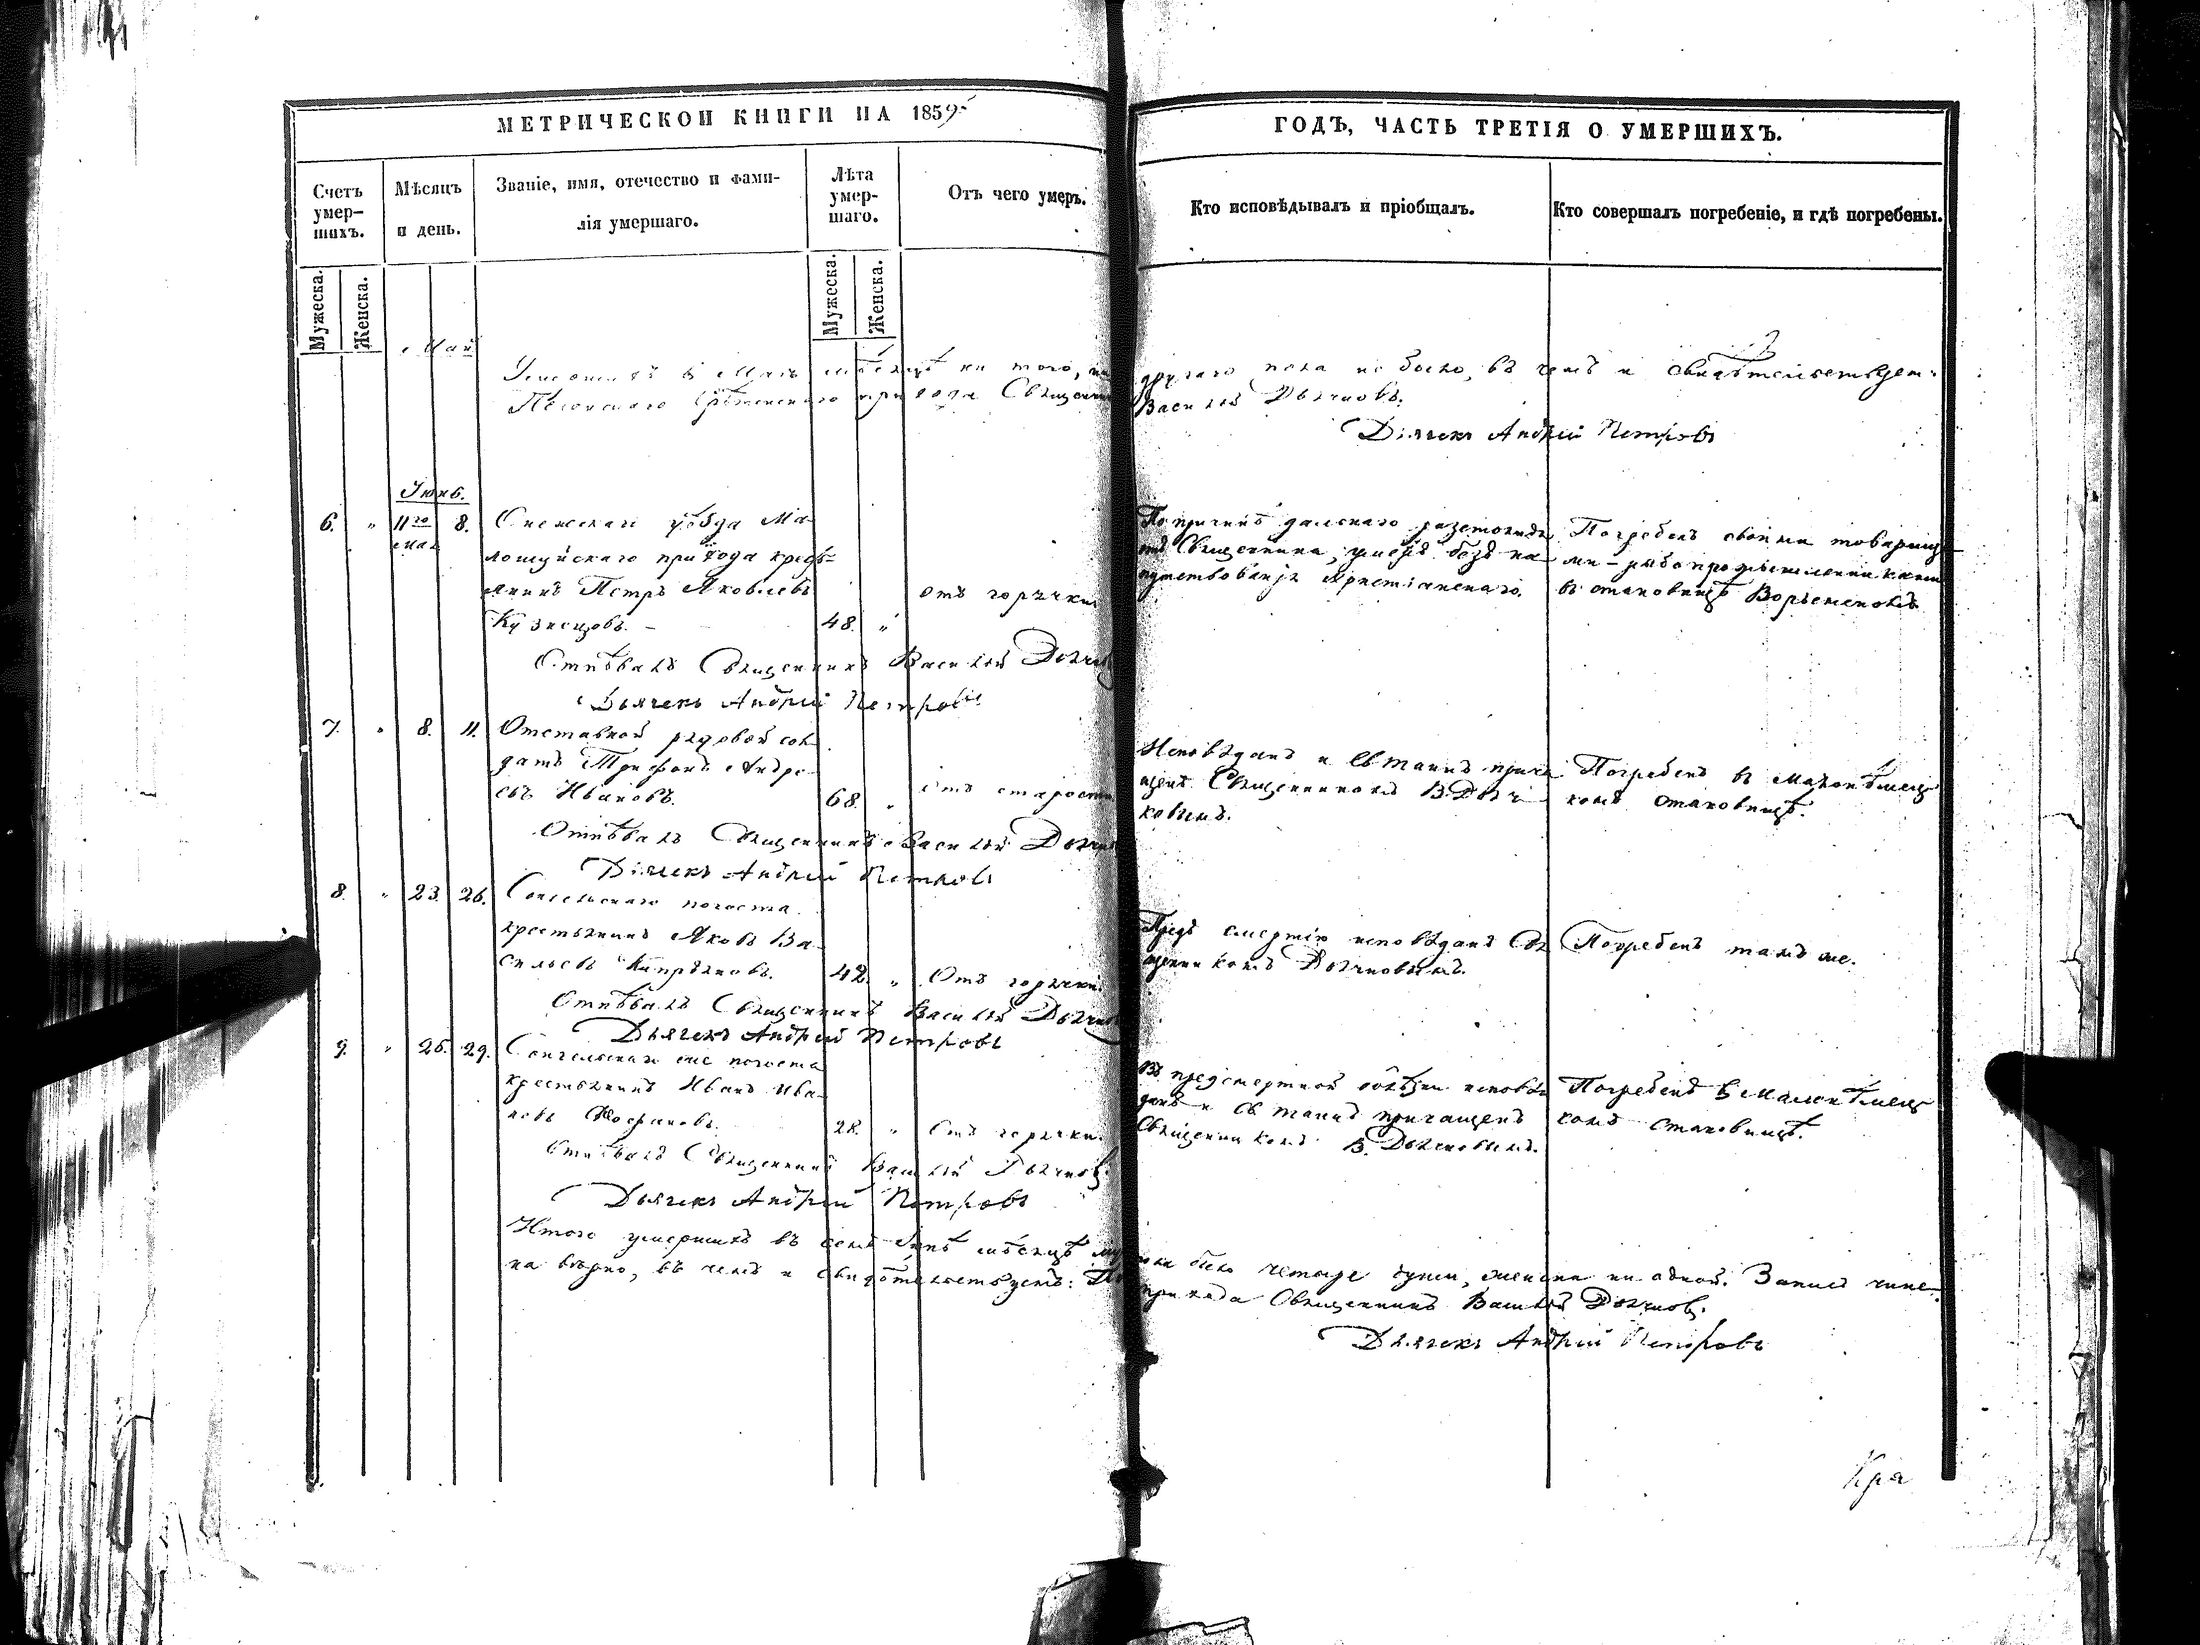 МЕТРИЧЕСКОЙ КНИГИ НА 1859
ГОДЪ, ЧАСТЬ ТРЕТІЯ О УМЕРШИХЪ.
Счетъ умер-
шихъ.
Мѣсяцъ
и день.
Званіе, имя, отечество и фами-
лія умершаго.
Лѣта
умер-
шаго.
Отъ чего умеръ.
Кто исповѣдывалъ и пріобщалъ.
Кто совершалъ погребеніе, и гдѣ погребены.
Мужеска.
Женска.
Мужеска.
Женска.
Май
въ Маѣ мѣсяцѣ ни того, ни другаго пола не было, въ чемъ и свидѣтельствуетъ:
прихода Священникъ Василій
Дьячекъ Андрей Петровъ
Іюнь.
6. " 11го мая 8. Онежскаго уѣзда Ма-
лошуйскаго прихода кресть-
янинъ Петръ Яковлевъ
Кузнецовъ. 48. " отъ горячки
По причинѣ дальняго разстоянія
отъ Священника, умеръ безъ на-
путствованія христіанскаго.
Погребенъ своими товарища-
ми - рыбопромышленниками
въ становищѣ
Отпѣвалъ Священникъ Василій
Дьячекъ Андрей Петровъ
7. " 8. 11. Отставной рядовой сол-
датъ Трифонъ Андре-
евъ Ивановъ. 68. " отъ старости
Исповѣданъ и Св. Таинъ прича-
щенъ Священникомъ В.
Погребенъ въ
комъ становищѣ.
Отпѣвалъ Священникъ Василій
Дьячекъ Андрей Петровъ
8. " 23. 26. погоста
крестьянинъ Яковъ Ва-
сильевъ 42. " Отъ горячки.
Предъ смертію исповѣданъ Свя-
щенникомъ
Погребенъ тамъ же.
Отпѣвалъ Священникъ Василій
Дьячекъ Андрей Петровъ
9. " 26. 29. же погоста
крестьянинъ Иванъ Ива-
новъ 28. " Отъ горячки.
Въ предсмертной болѣзни исповѣ-
данъ и Св. таинъ причащенъ
Священникомъ В.
Погребенъ въ
комъ становищѣ.
Отпѣвалъ Священникъ Василій
Дьячекъ Андрей Петровъ
Итого умершихъ въ семъ Іюнѣ мѣсяцѣ было четыре души, женска ни одной. Запись чине-
на вѣрно, въ чемъ и свидѣтельствуемъ: прихода Священникъ Василій
Дьячекъ Андрей Петровъ
Кра